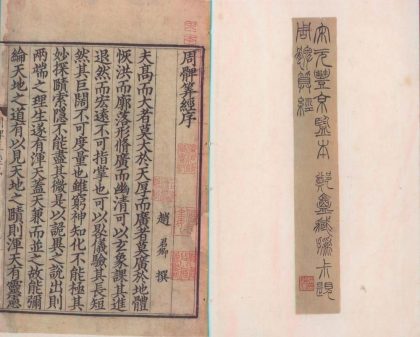 宋元豐京監本 鄭盦藏
周髀算經
周髀算經序
趙君卿撰
夫髙而大者莫大於天厚而廣者莫廣於地體
恢洪而廓落形脩廣而幽清可以玄象課其進
退然而宏遠不可指掌也可以晷儀驗其長短
然其巨闊不可度量也雖窮神知化不能極其
妙探賾索隱不能盡其微是以詭異之說出則
兩端之理生遂有渾天蓋天兼而並之故能彌
綸天地之道有以見天地之賾則渾天有靈憲